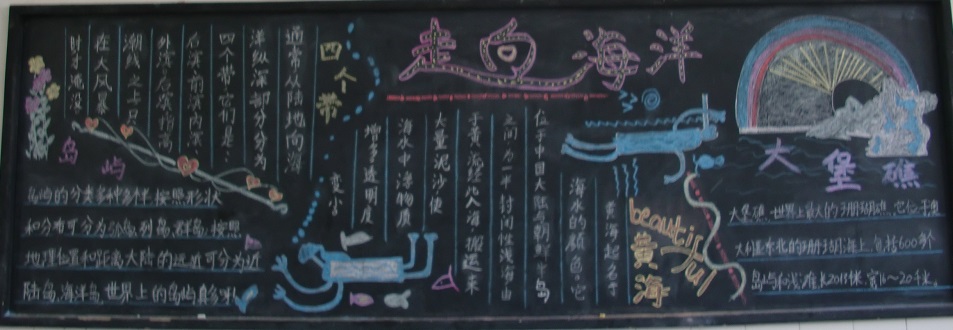 走向海洋
四个带
通常从陆地向海
洋纵深部分分为
四个带,它们是:
后滨、前滨、内
外滨。后滨指高
潮线之上只
在大风暴
时才淹没
岛屿
岛屿的分类多种多样,按照形状
和分布可分为
岛、列岛、群岛,按照
地理位置和距离大陆的远近可分为近
陆岛、海洋岛,世界上的岛屿真多呀!
beautiful
黄海
黄海起名于
海水的颜色,它
位于中国大陆与朝鲜半岛
之间,为一半封闭性浅海,由
于黄河
入海,搬运来
大量泥沙,使
海水中
物质
增多,透明度
变小。
大堡礁
大堡礁,世界上最大的珊瑚礁,它位于
大利亚东北的珊瑚海上,包括600多个
岛屿和浅滩,长2013千米,宽16~20千米。